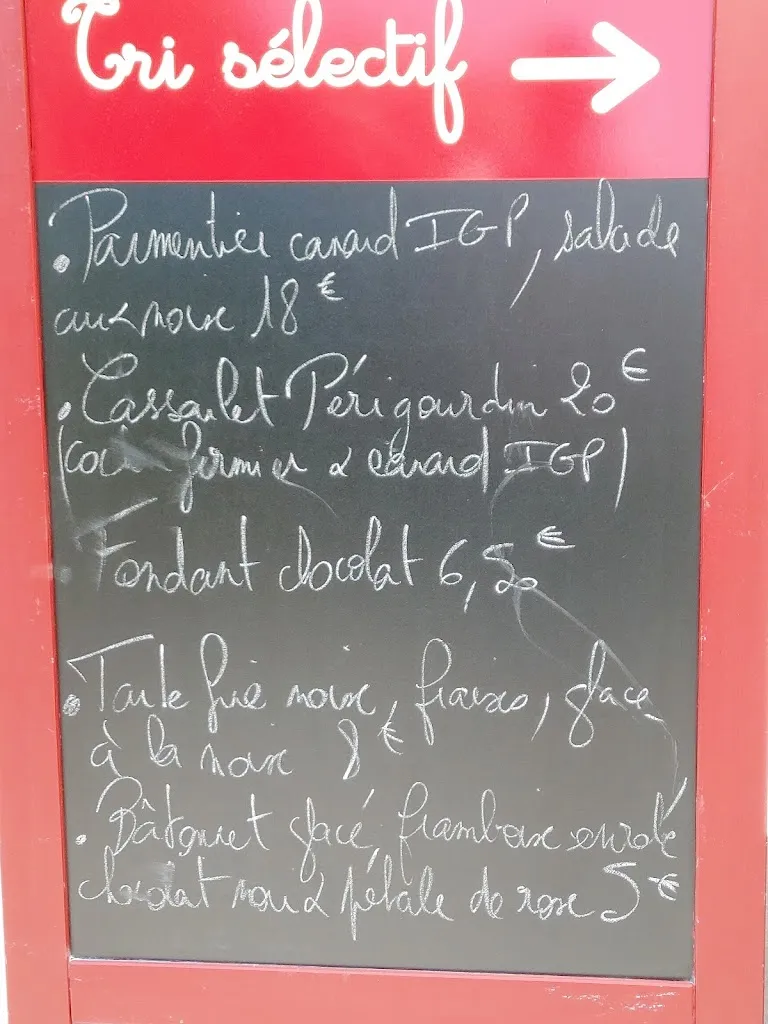 Tri sélectif →
• Parmentier canard IGP, salade
aux noix 18 €
• Cassoulet Périgourdin 20 €
(cochon fermier & canard IGP)
Fondant chocolat 6,50 €
• Tarte fine noix, fraises, glace
à la noix 8 €
• Bâtonnet glacé framboise enrobé
chocolat noir & pétale de rose 5 €